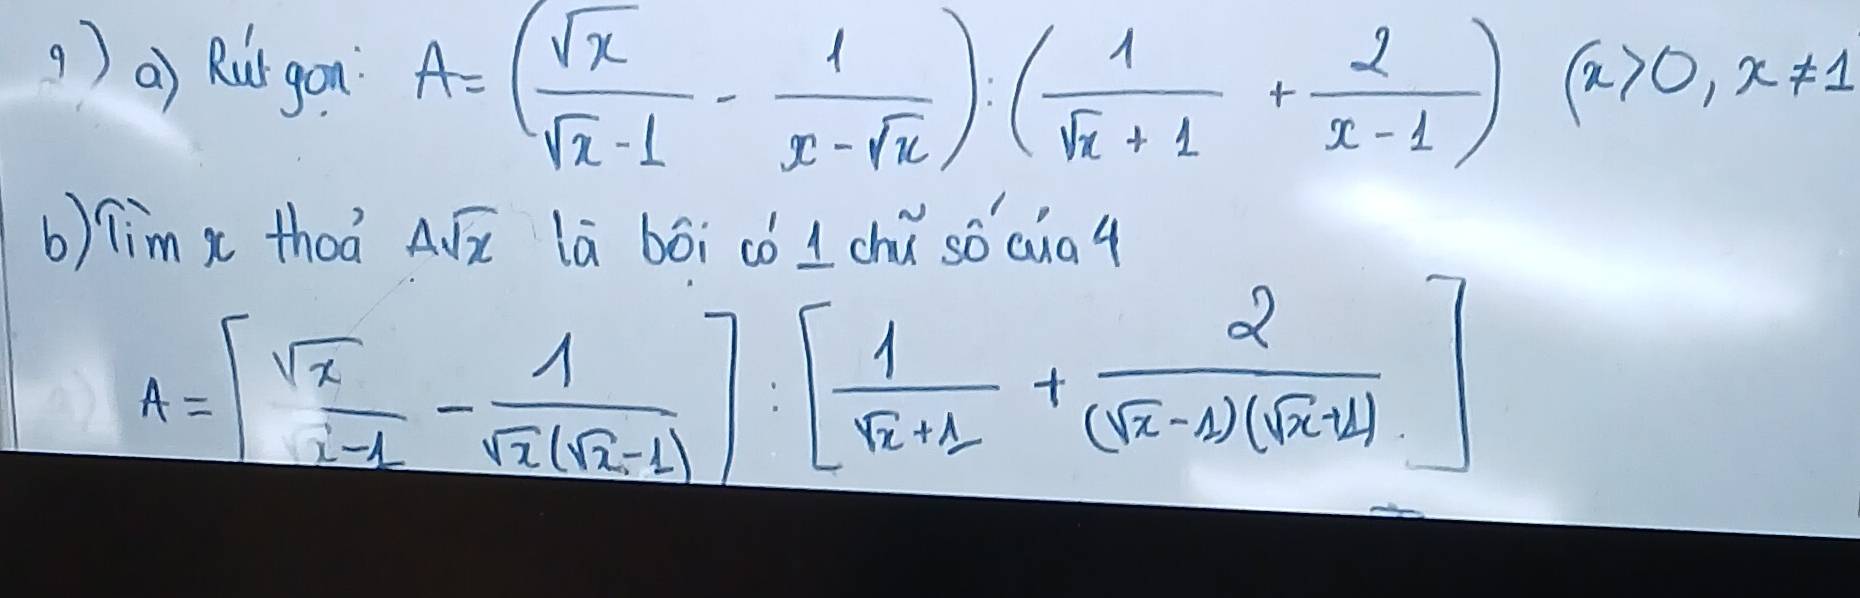 9) a) Rút gọn: A = (√x / (√x - 1) - 1 / (x - √x)) : (1 / (√x + 1) + 2 / (x - 1)) (x > 0, x ≠ 1
b) Tìm x thoả A√x là bội có 1 chữ số của 4
A = [√x / (√x - 1) - 1 / (√x(√x - 1))] : [1 / (√x + 1) + 2 / ((√x - 1)(√x + 1))]